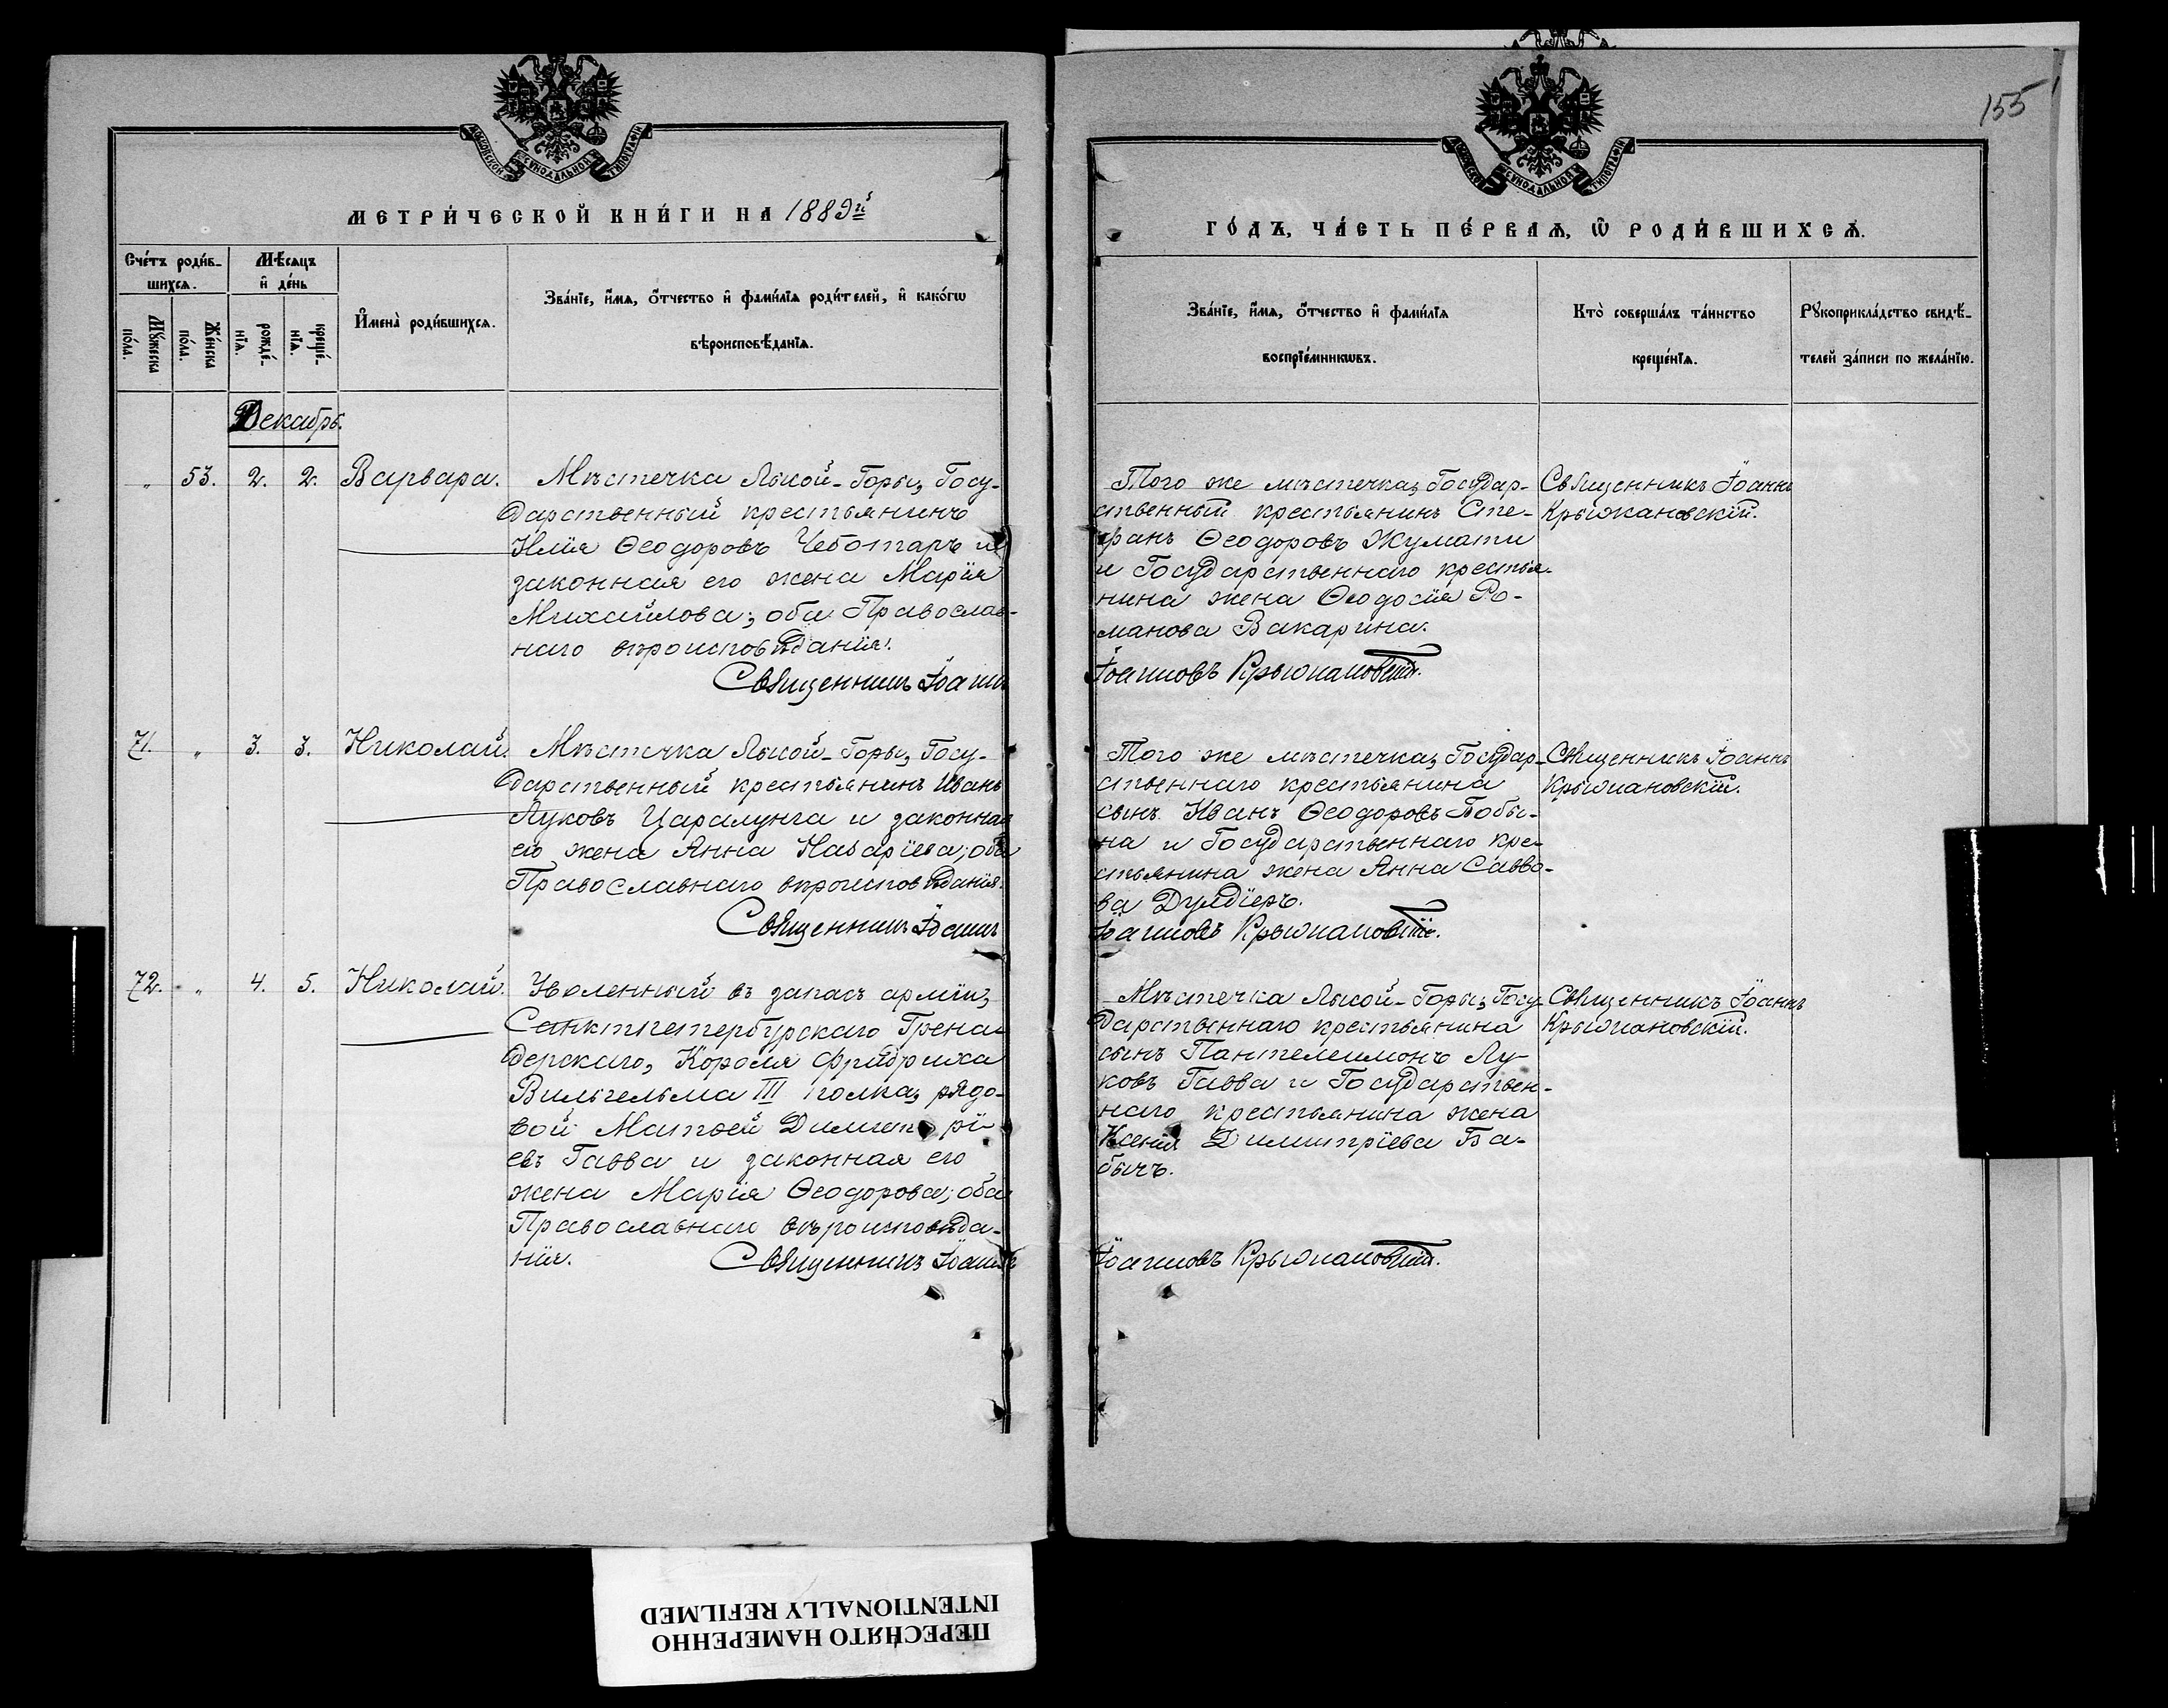 155
МОСКОВСКОЙ СѴНОДАЛЬНОЙ ТИПОГРАФІИ
МОСКОВСКОЙ СѴНОДАЛЬНОЙ ТИПОГРАФІИ
МЕТРИ́ЧЕСКОЙ КНИ́ГИ НА 1889й
ГО́ДЪ, ЧА́СТЬ ПЕ́РВАѦ, Ѽ РОДИ́ВШИХСѦ.
Сче́тъ роди́в-
шихсѧ.
Мѣ́сѧцъ
и҆ де́нь
Мꙋ́жеска
по́ла.
Же́нска
по́ла.
рожде́-
нїѧ.
креще́-
нїѧ.
И҆мена̀ роди́вшихсѧ.
Зва́нїе, и҆́мѧ, ѻ҆́тчество и҆ фами́лїѧ роди́телей, и҆ како́гѡ
вѣроисповѣ́данїѧ.
Зва́нїе, и҆́мѧ, ѻ҆́тчество и҆ фами́лїѧ
воспрїе́мникѡвъ.
Кто̀ соверша́лъ та́инство
креще́нїѧ.
Рꙋкоприкла́дство свидѣ́-
телей за́писи по жела́нїю.
Декабрь.
" 53. 2. 2. Варвара.
Мѣстечка Лысой-Горы, Госу-
дарственный крестьянинъ
Илія Ѳеодоровъ Чеботарь и
законная его жена Марія
Михайлова; оба Православ-
наго вѣроисповѣданія.
Священникъ Іоаннъ
Того же мѣстечка, Государ-
ственный крестьянинъ Сте-
фанъ Ѳеодоровъ Жумати
и Государственнаго крестья-
нина жена Ѳеодосія Ро-
манова Вакарина.
Іоанновъ Крыжановскій.
Священникъ Іоаннъ
Крыжановскій.
71. " 3. 3. Николай.
Мѣстечка Лысой-Горы, Госу-
дарственный крестьянинъ Иванъ
Луковъ Царалунга и законная
его жена Анна Назаріева; оба
Православнаго вѣроисповѣданія.
Священникъ Іоаннъ
Того же мѣстечка, Государ-
ственнаго крестьянина
сынъ Иванъ Ѳеодоровъ Бобы-
на и Государственнаго кре-
стьянина жена Анна Савво-
ва Дулдіеръ.
Іоанновъ Крыжановскій.
Священникъ Іоаннъ
Крыжановскій.
72. " 4. 5. Николай.
Уволенный въ запасъ арміи,
Санктпетербургскаго Грена-
дерскаго, Короля Фридриха
Вильгельма III полка, рядо-
вой Матѳей Димитрі-
евъ Гавва и законная его
жена Марія Ѳеодорова; оба
Православнаго вѣроисповѣда-
нія.
Священникъ Іоаннъ
Мѣстечка Лысой-Горы, Госу-
дарственнаго крестьянина
сынъ Пантелеимонъ Лу-
ковъ Гавва и Государствен-
наго крестьянина жена
Ксенія Димитріева Ба-
бычъ.
Іоанновъ Крыжановскій.
Священникъ Іоаннъ
Крыжановскій.
ПЕРЕСНЯТО НАМЕРЕННО
INTENTIONALLY REFILMED